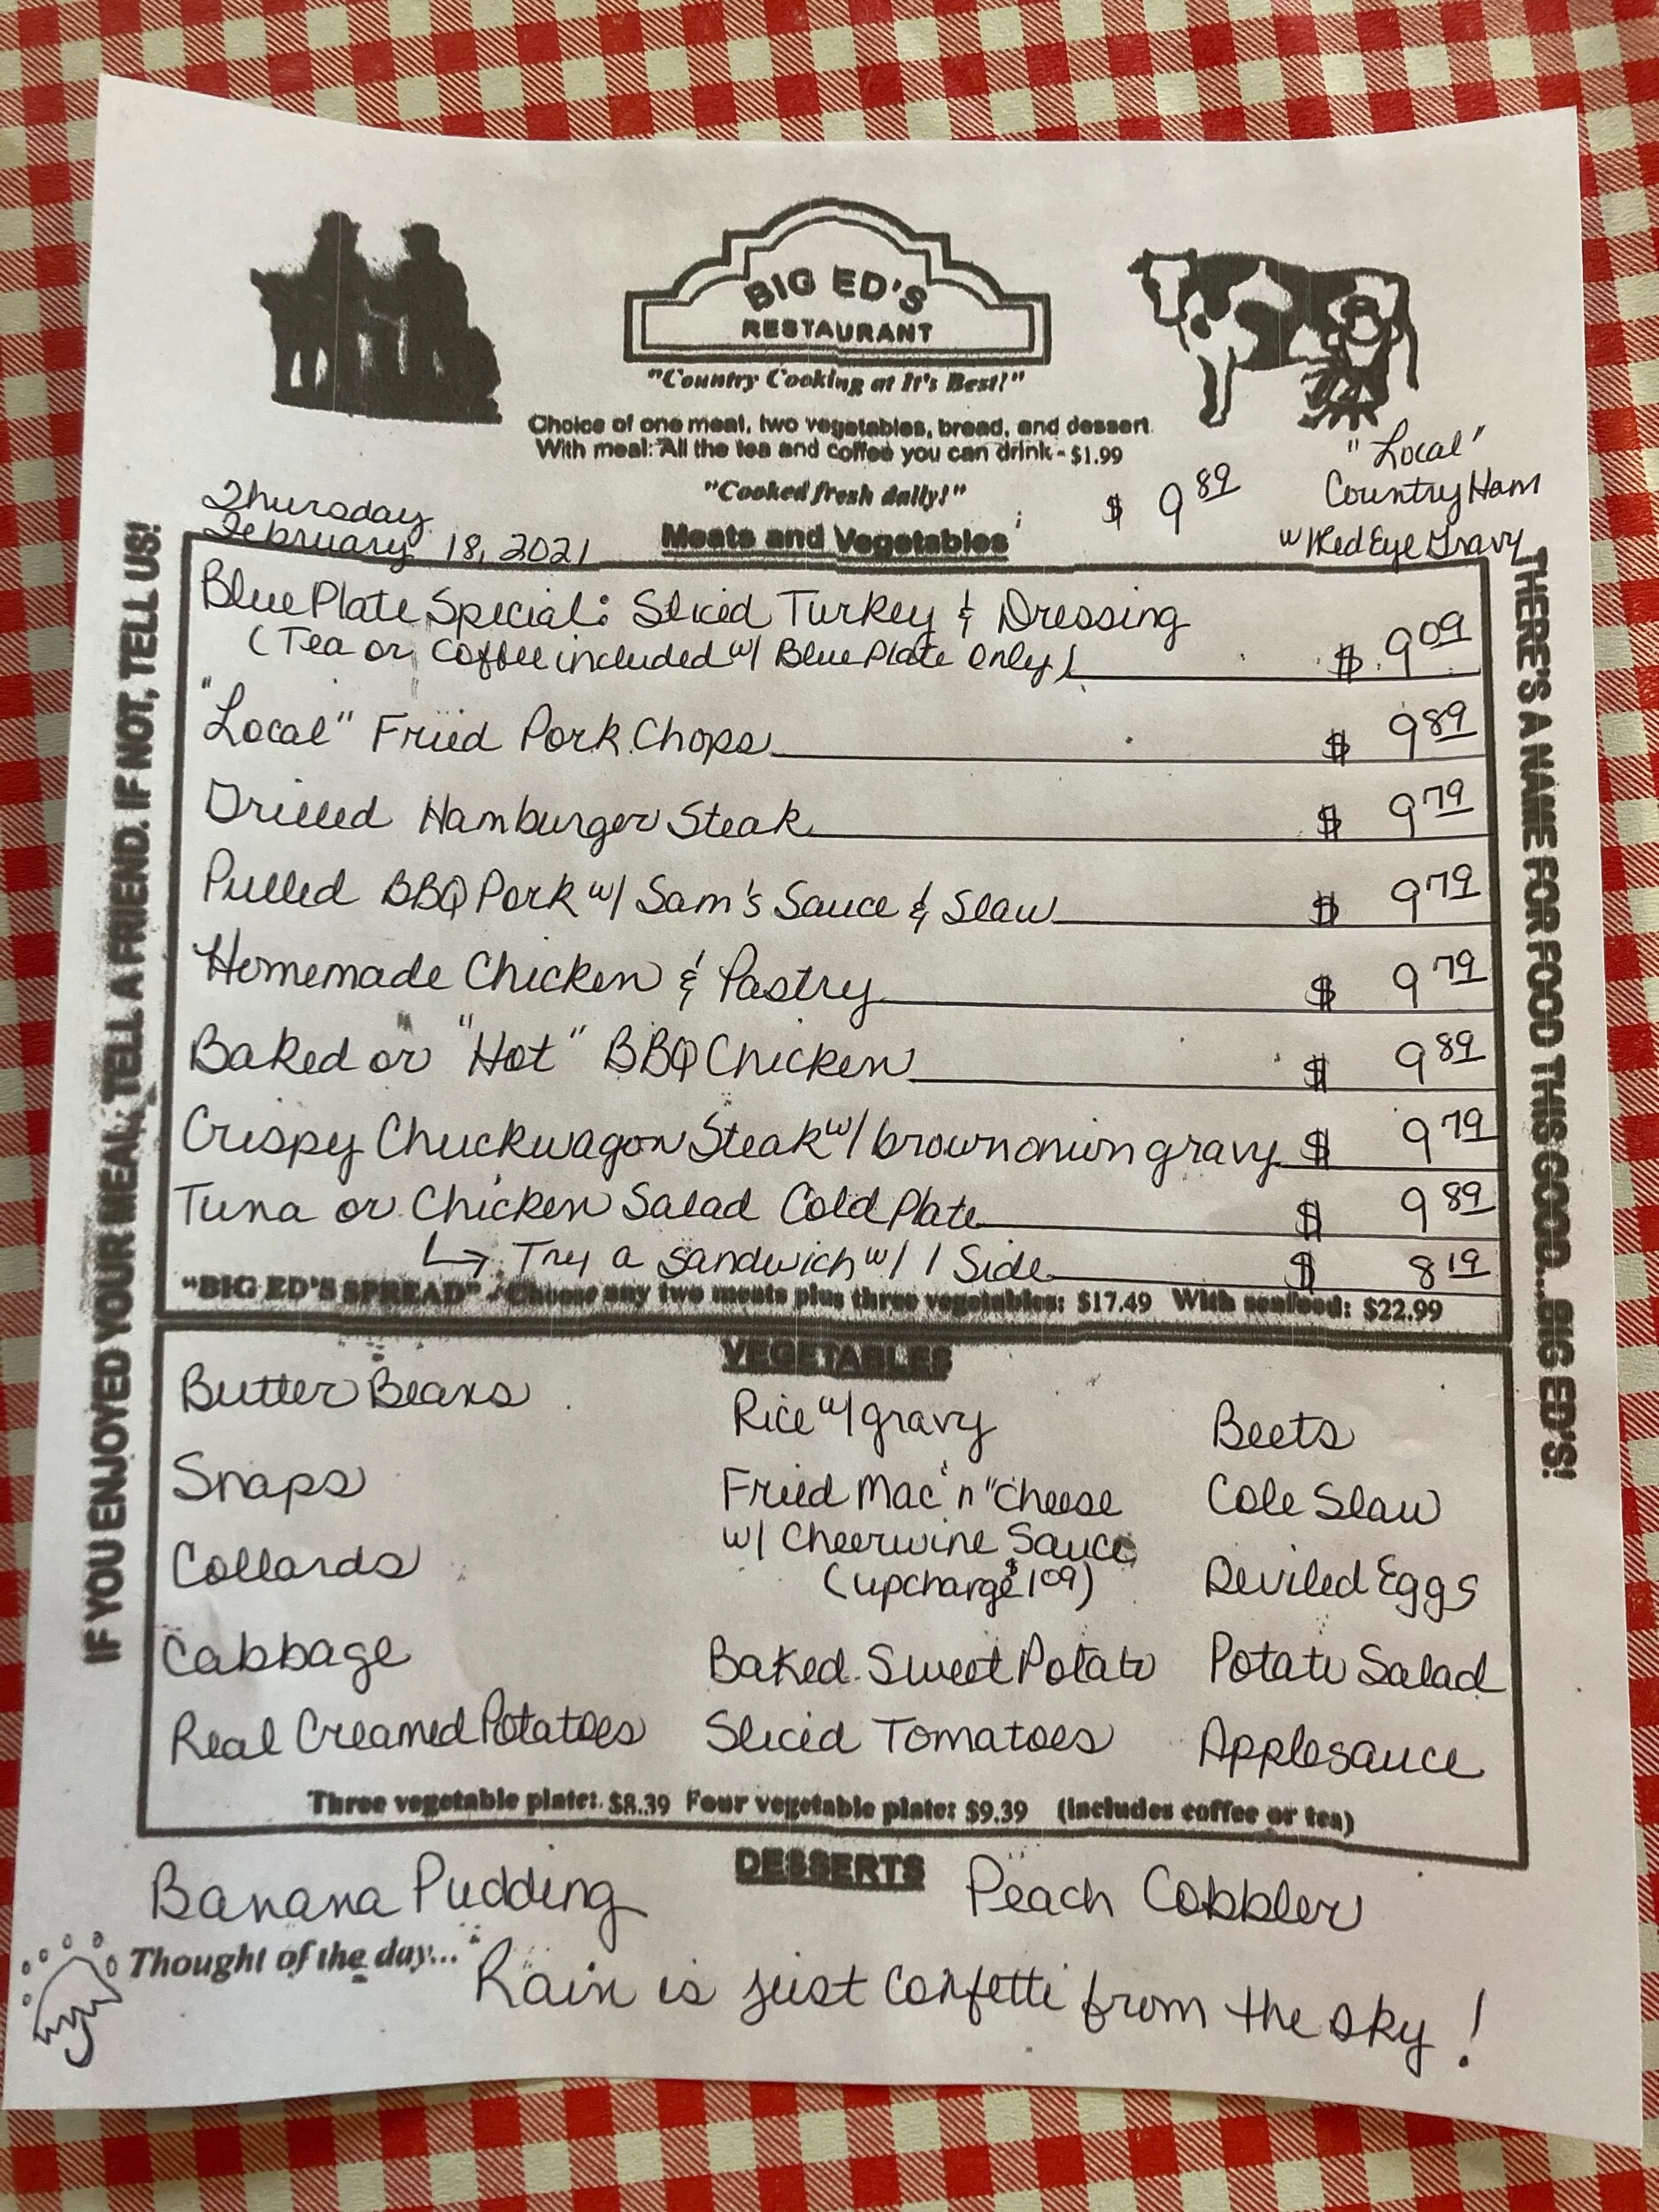 BIG ED'S
RESTAURANT
"Country Cooking at It's Best!"
Choice of one meat, two vegetables, bread, and dessert
With meal: "All the tea and coffee you can drink - $1.99
"Cooked fresh daily!"
$ 9 89
"Local"
Country Ham
w/ Red Eye Gravy
Thursday
February 18, 2021
Meats and Vegetables
Blue Plate Special: Sliced Turkey & Dressing
(Tea or Coffee included w/ Blue Plate Only) $ 9 09
"Local" Fried Pork Chops $ 9 89
Grilled Hamburger Steak $ 9 79
Pulled BBQ Pork w/ Sam's Sauce & Slaw $ 9 79
Homemade Chicken & Pastry $ 9 79
Baked or "Hot" BBQ Chicken $ 9 89
Crispy Chuckwagon Steak w/ brown onion gravy $ 9 79
Tuna or Chicken Salad Cold Plate $ 9 89
↳ Try a Sandwich w/ 1 Side $ 8 19
"BIG ED'S SPREAD" - Choose any two meats plus three vegetables: $17.49 With seafood: $22.99
VEGETABLES
Butter Beans
Snaps
Collards
Cabbage
Real Creamed Potatoes
Rice w/ gravy
Fried Mac 'n' Cheese
w/ Cheerwine Sauce
(upcharge $1 09)
Baked Sweet Potato
Sliced Tomatoes
Beets
Cole Slaw
Deviled Eggs
Potato Salad
Applesauce
Three vegetable plate: $8.39 Four vegetable plate: $9.39 (Includes coffee or tea)
DESSERTS
Banana Pudding
Peach Cobbler
Thought of the day... Rain is just confetti from the sky!
IF YOU ENJOYED YOUR MEAL, TELL A FRIEND. IF NOT, TELL US!
THERE'S A NAME FOR FOOD THIS GOOD...BIG ED'S!